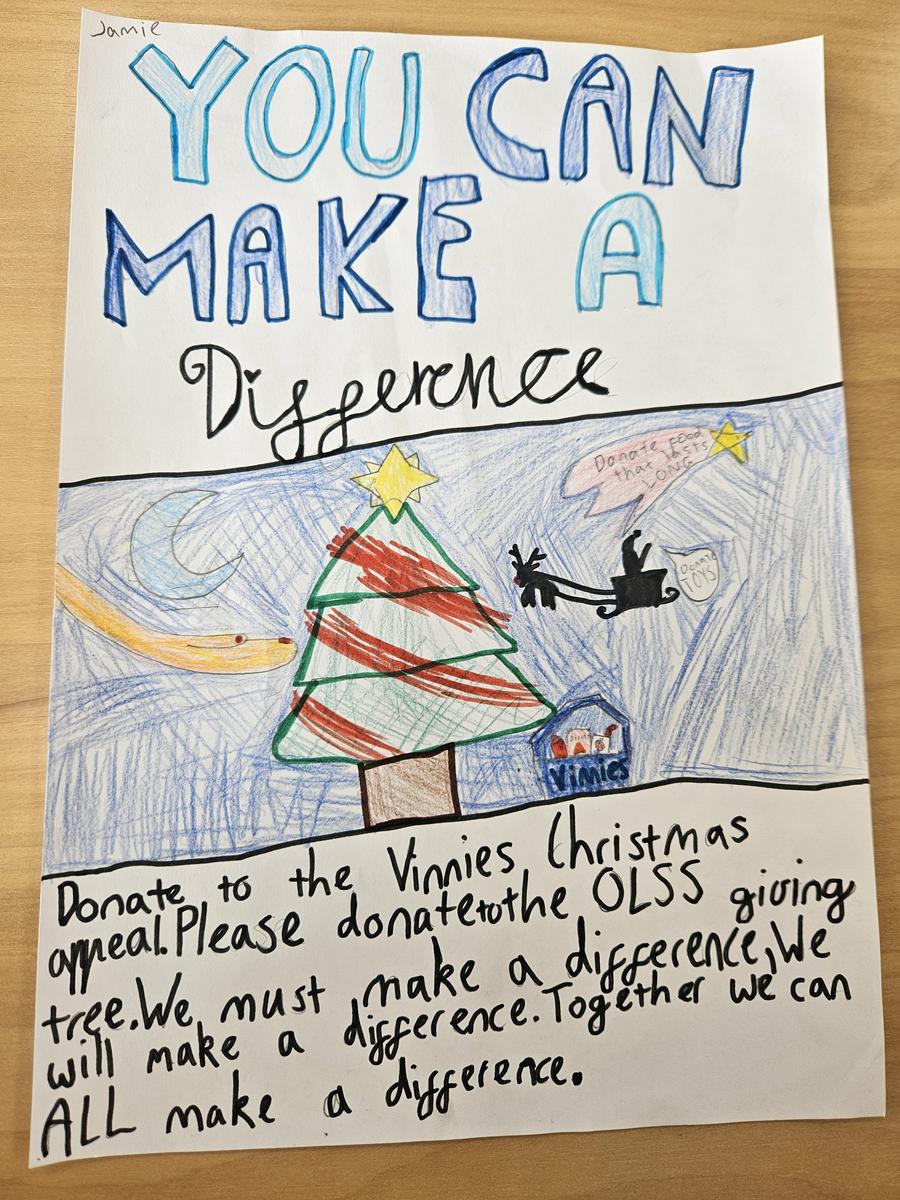 Jamie
YOU CAN
MAKE A
Difference
Donate food
that lasts
LONG
Donate
TOYS
Vinnies
Donate to the Vinnies Christmas
appeal. Please donate to the OLSS giving
tree. We must make a difference, We
will make a difference. Together we can
ALL make a difference.